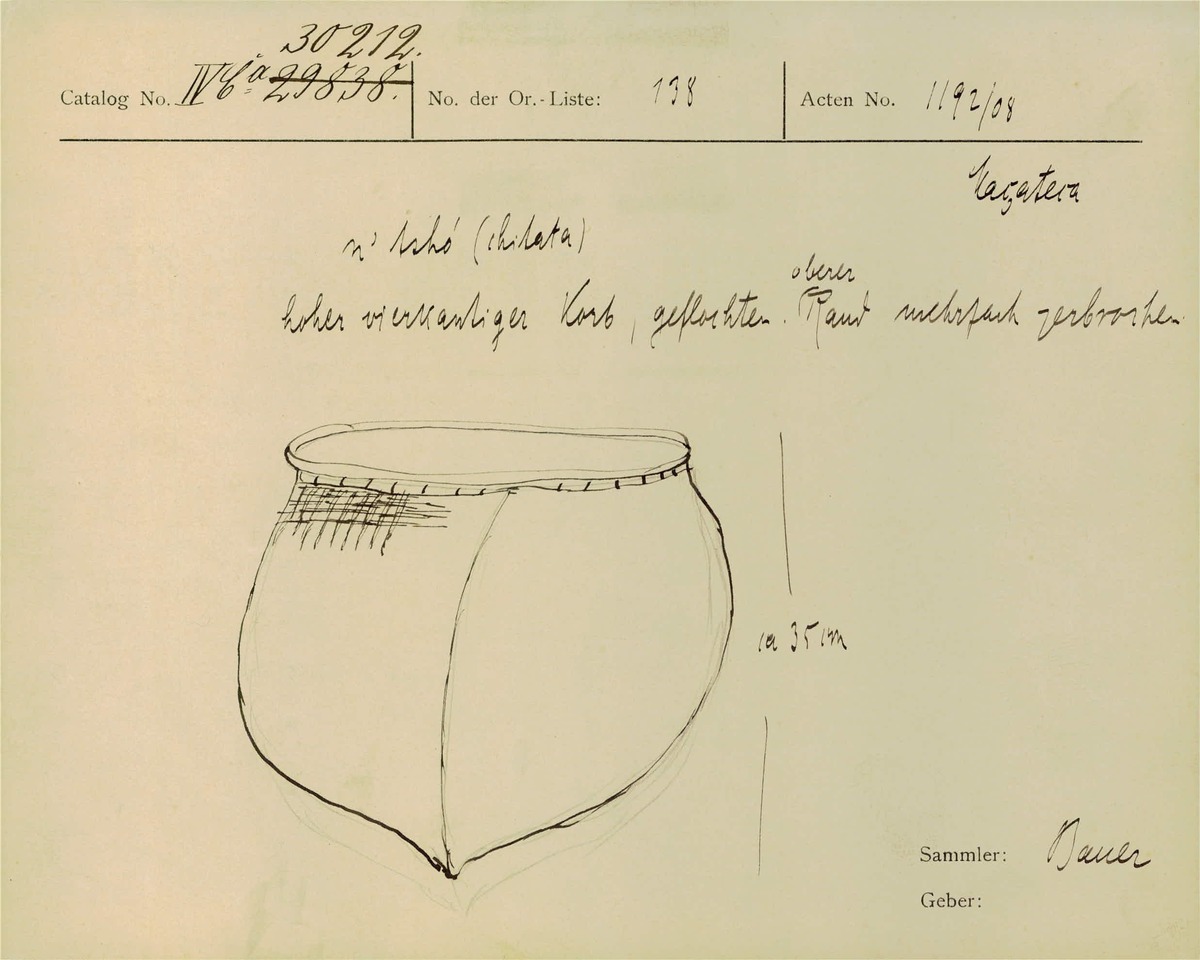 30212.
Catalog No. IV Ca 29838. No. der Or.-Liste: 138 Acten No. 1192/08
Mazateca
n' tshó (chitata)
oberer
hoher vierkantiger Korb, geflochten. Rand mehrfach zerbrochen
ca 35 cm
Sammler: Bauer
Geber: